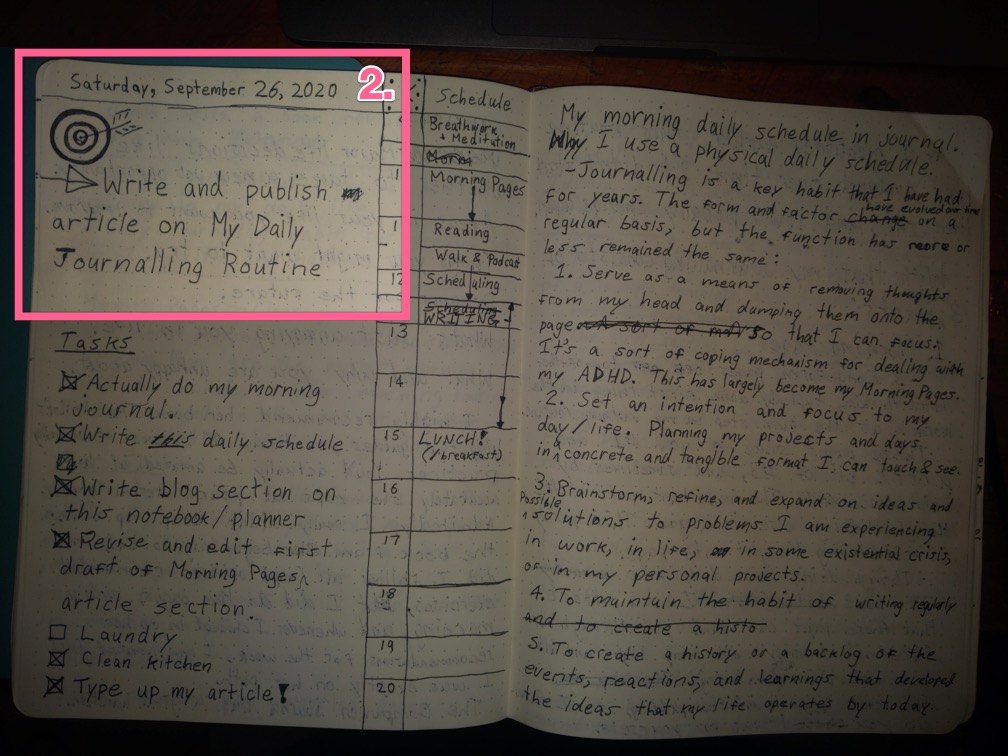 Saturday, September 26, 2020
2.
Write and publish
article on My Daily
Journalling Routine
Tasks
Actually do my morning
journal.
Write this daily schedule
Write blog section on
this notebook/planner
Revise and edit first
draft of Morning Pages
article section.
Laundry
Clean kitchen
Type up my article!
Schedule
Breathwork
+ Meditation
Morni
1
Morning Pages
1
Reading
Walk & Podcast
12
Scheduling
Scheduling
WRITING
13
14
15
LUNCH!
(/breakfast)
16
17
18
19
20
My morning daily schedule in journal.
Why I use a physical daily schedule.
-Journalling is a key habit that I have had
for years. The form and factor change have evolved over time on a
regular basis, but the function has more or
less remained the same:
1. Serve as a means of removing thoughts
from my head and dumping them onto the
page so that I can focus.
It's a sort of coping mechanism for dealing with
my ADHD. This has largely become my Morning Pages.
2. Set an intention and focus to my
day/life. Planning my projects and days
in a concrete and tangible format I can touch & see.
3. Brainstorm, refine, and expand on ideas and
possible solutions to problems I am experiencing
in work, in life, in some existential crisis,
or in my personal projects.
4. To maintain the habit of writing regularly
and to create a histo
5. To create a history or a backlog of the
events, reactions, and learnings that developed
the ideas that my life operates by today.